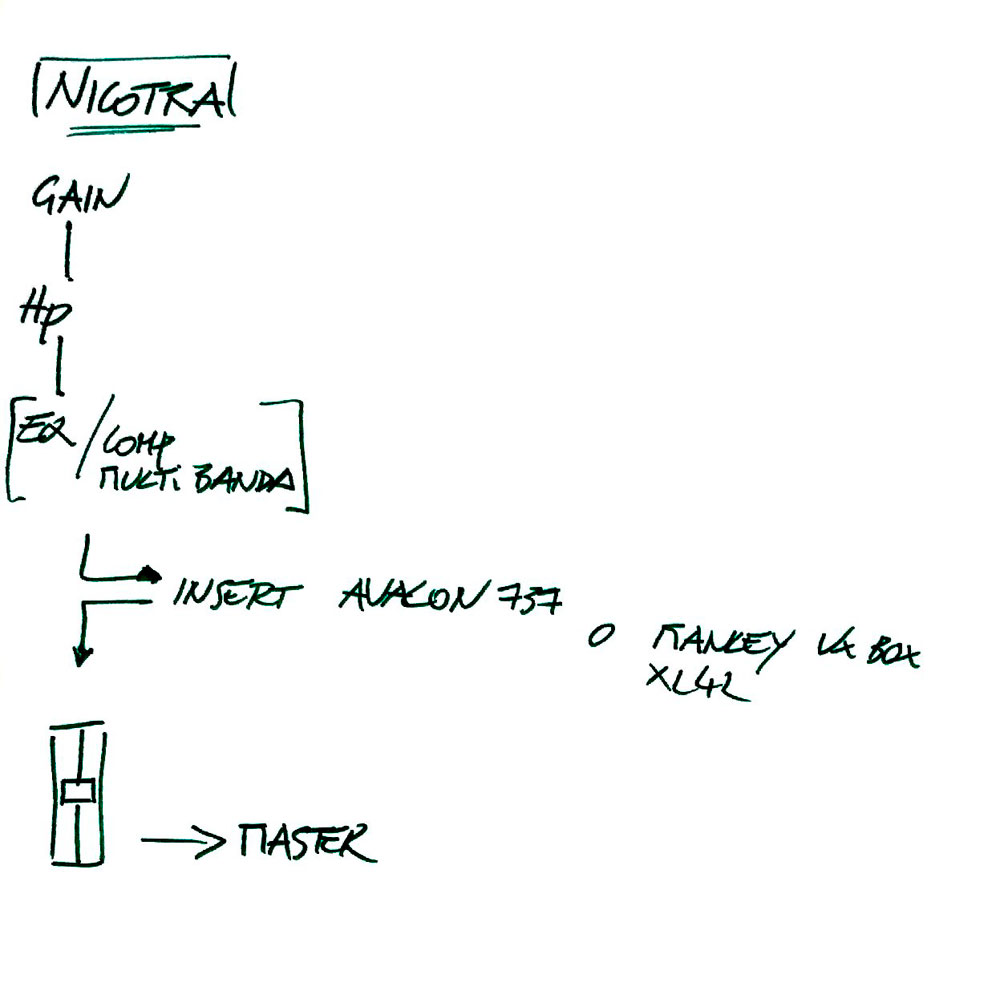 NICOTRA
GAIN
Hp
EQ / COMP
MULTI BANDA
INSERT AVALON 737
O MANLEY VOX BOX
XL42
MASTER